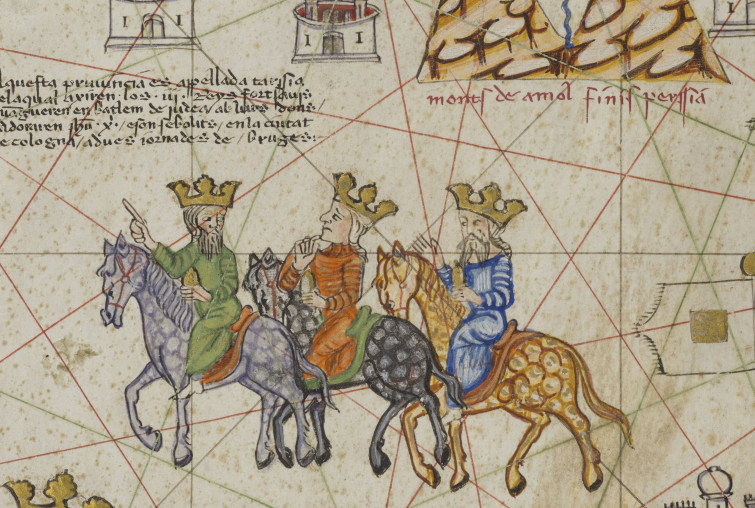 questa provincia es apellada tarssia
elaqual axiren los iii reys fort savis
vagueren en batlem de judea ab lurs dons
adoraren ihu x e son sebolits en la ciutat
e cologna a dues jornades de bruges
monts de amol finis perssia
I I
I I